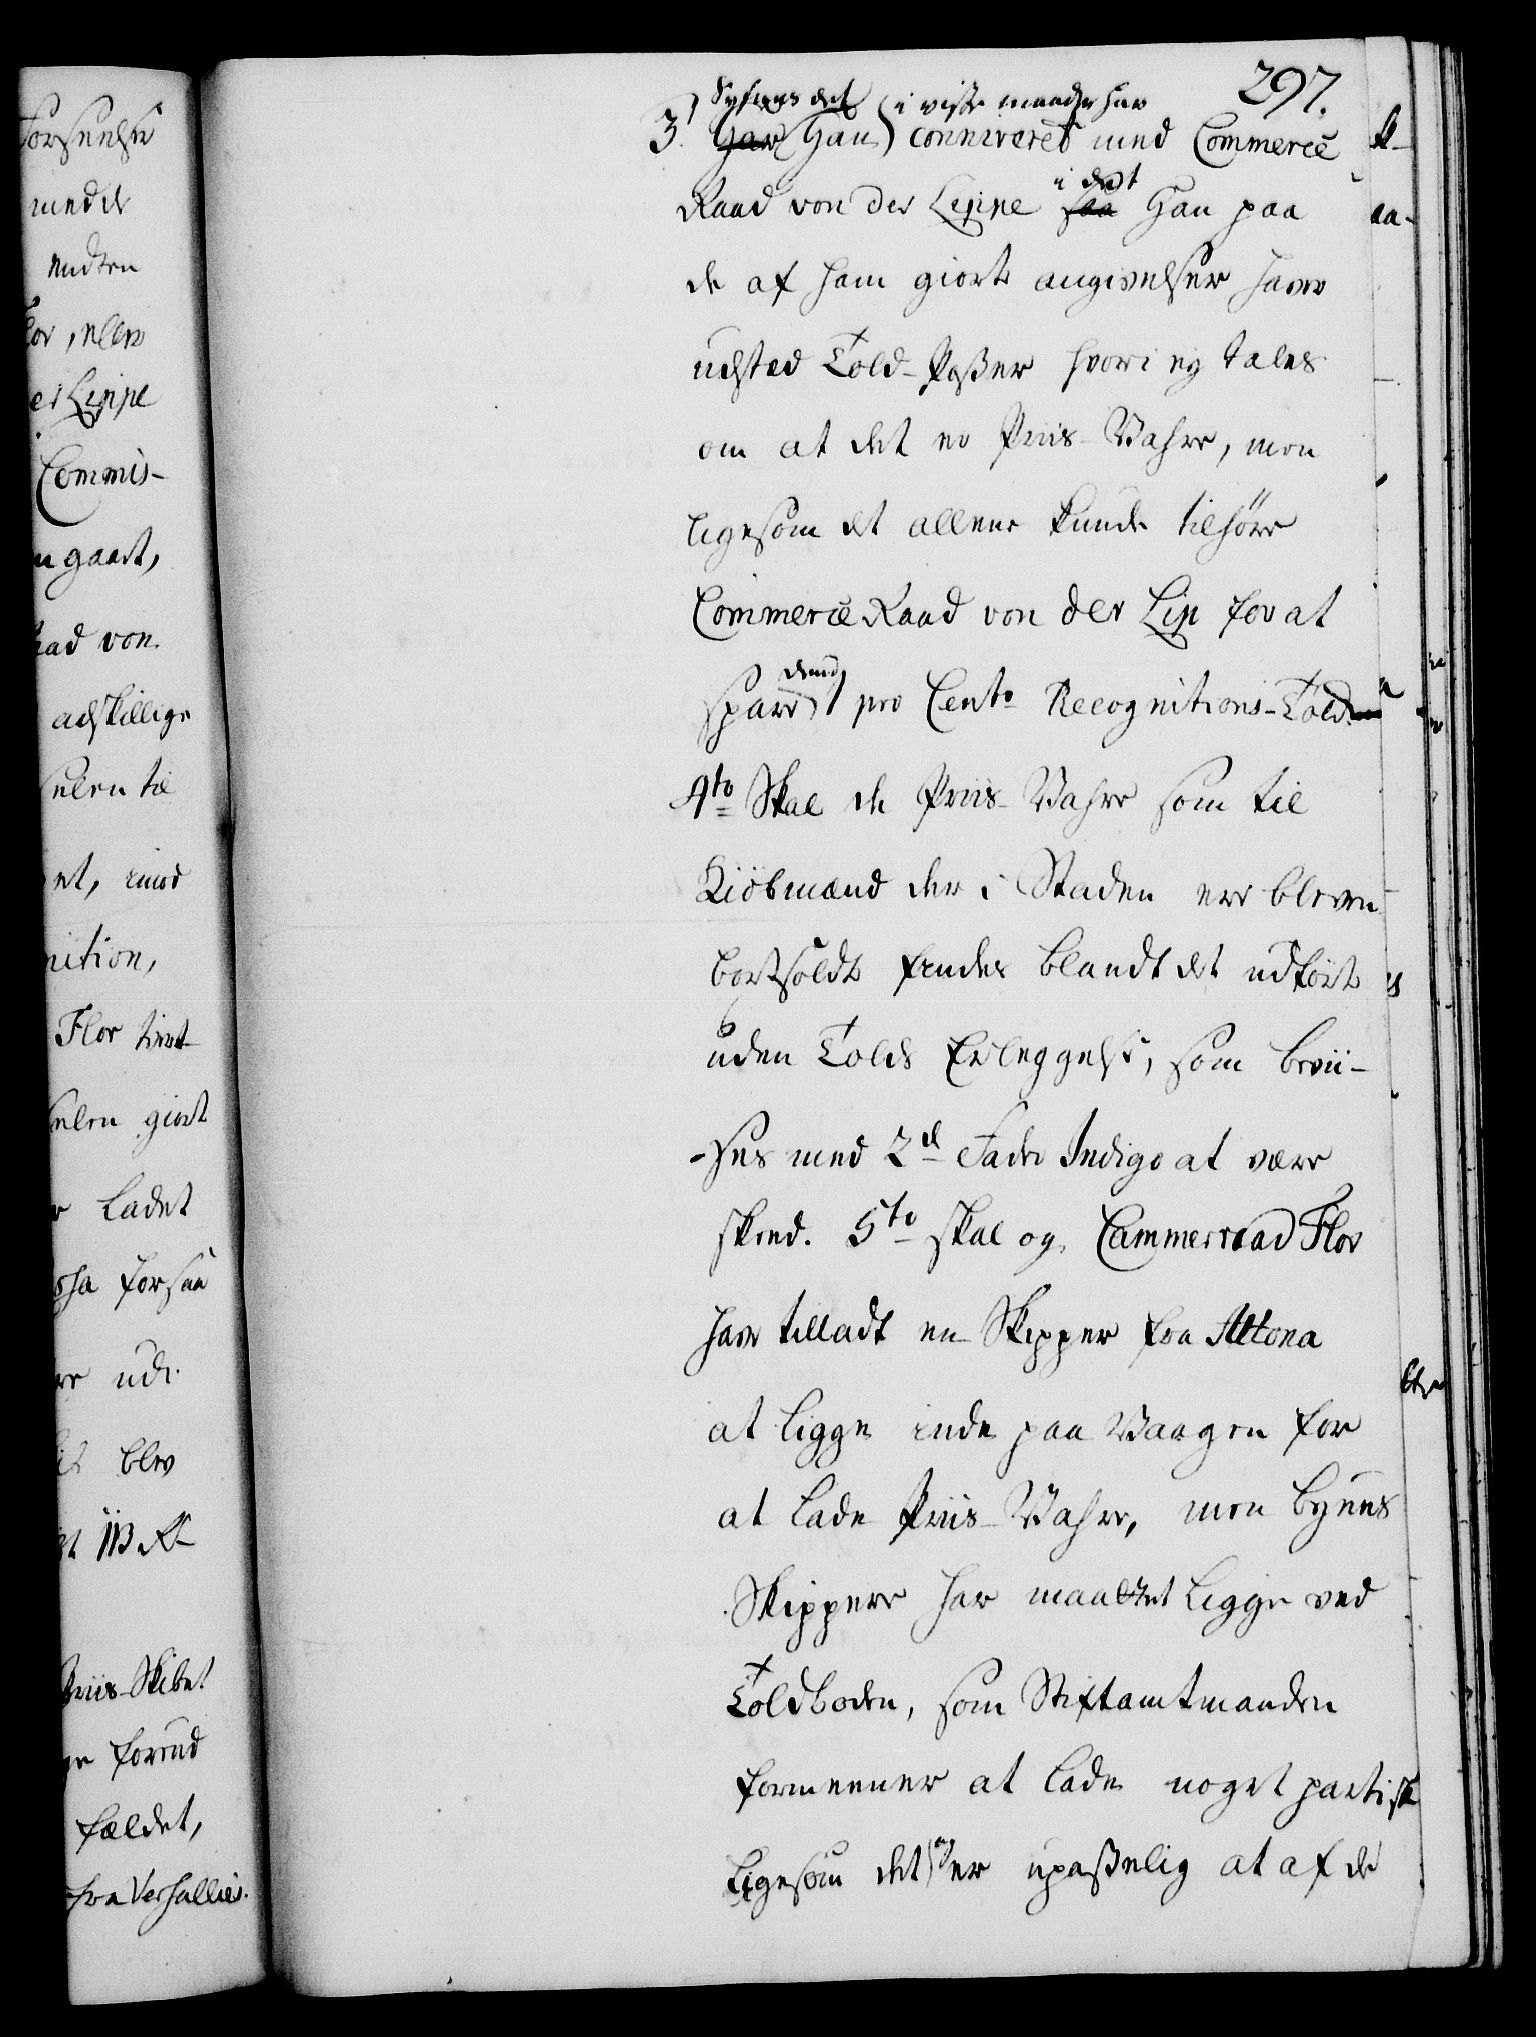 297.
Synes det i visse maader har
3. Har Han conniveret med Commerce
i det
Raad von der Lippe saa Han paa
de af ham giorte angivelser haver
udsted Told-Passer hvori ej tales
om at det er Priis-Vahre, men
ligesom det allene kunde tilhøre
Commerce Raad von der Lip for at
dend
spare 1 pro Cento Recognitions-Told
4to Skal de Priis-Vahre som til
Kiöbmænd der i Staden ere bleven
bortsoldt findes blandt det udförte
uden Tolds Erleggelse, som bevii-
-ses med 2de Fade Indigo at være
skeed. 5to skal og Cammerraad Flor
have tilladt en Skipper fra Altona
at ligge inde paa Vaagen for
at lade Priis-Vahre, men Byens
Skippere har maattet ligge ved
Toldboden, som Stiftamtmanden
formeener at lade noget partisk
ligesom det og er upasselig at af de
Forseelse
med de
endten
Flor, eller
der Lippe
Commis-
gaaet,
Raad von
adskillige
til
imod
Flor
giort
Ladet
forsaa
udi
blev
Priis-Skibet
forend
fældet,
fra Verhallies.